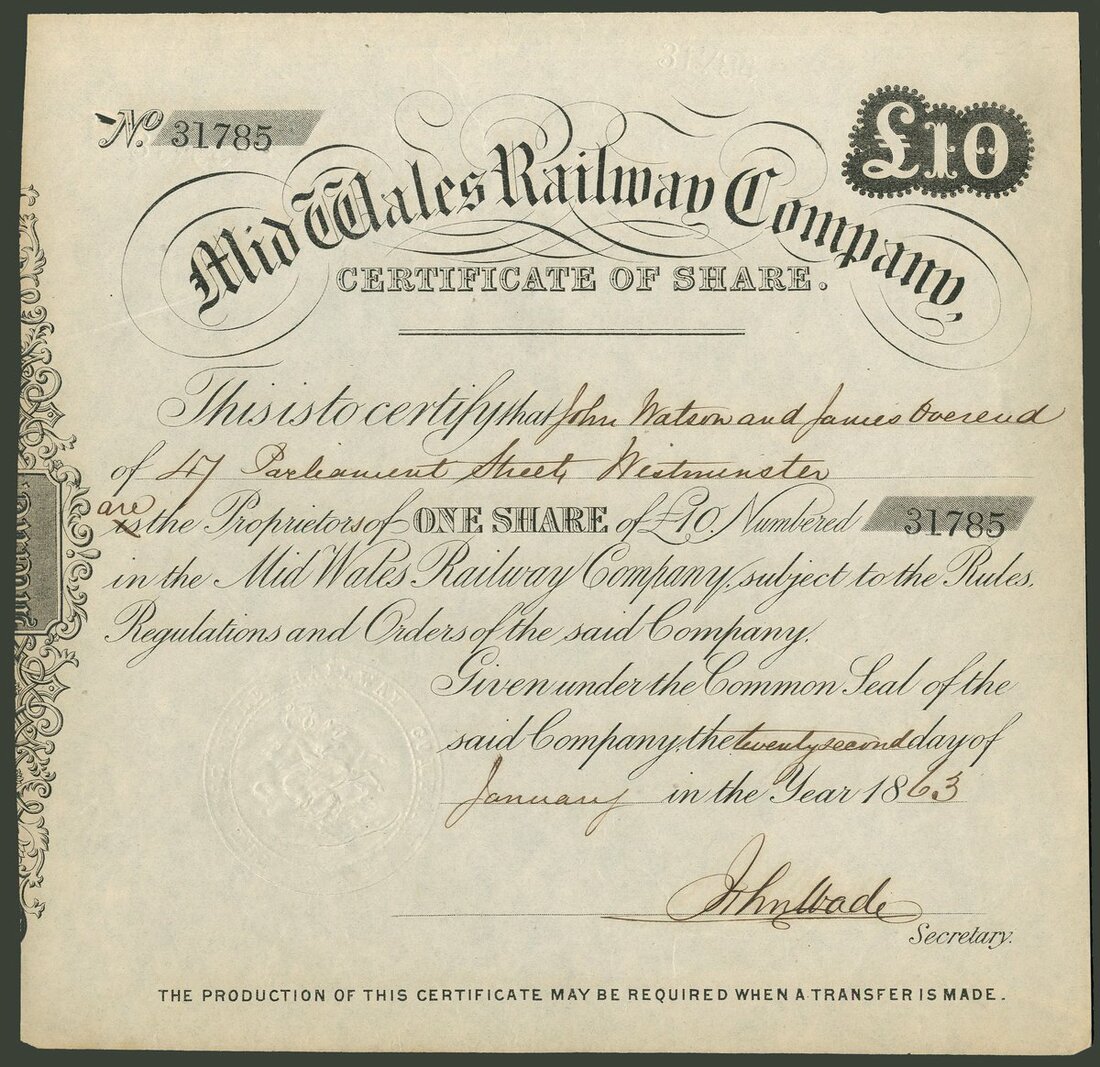 No. 31785
£10
Mid Wales Railway Company,
CERTIFICATE OF SHARE.
This is to certify that John Watson and James Overend
of 47 Parliament Street, Westminster
are
is the Proprietors of ONE SHARE of £10. Numbered 31785
in the Mid Wales Railway Company, subject to the Rules,
Regulations and Orders of the said Company.
Given under the Common Seal of the
said Company, the twenty second day of
January in the Year 1863
John Wade
Secretary.
THE PRODUCTION OF THIS CERTIFICATE MAY BE REQUIRED WHEN A TRANSFER IS MADE.